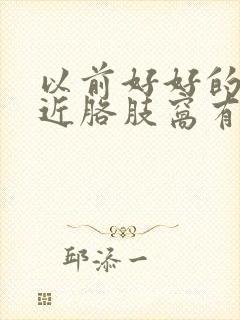 以前好好的
近胳肢窝有
邱添一